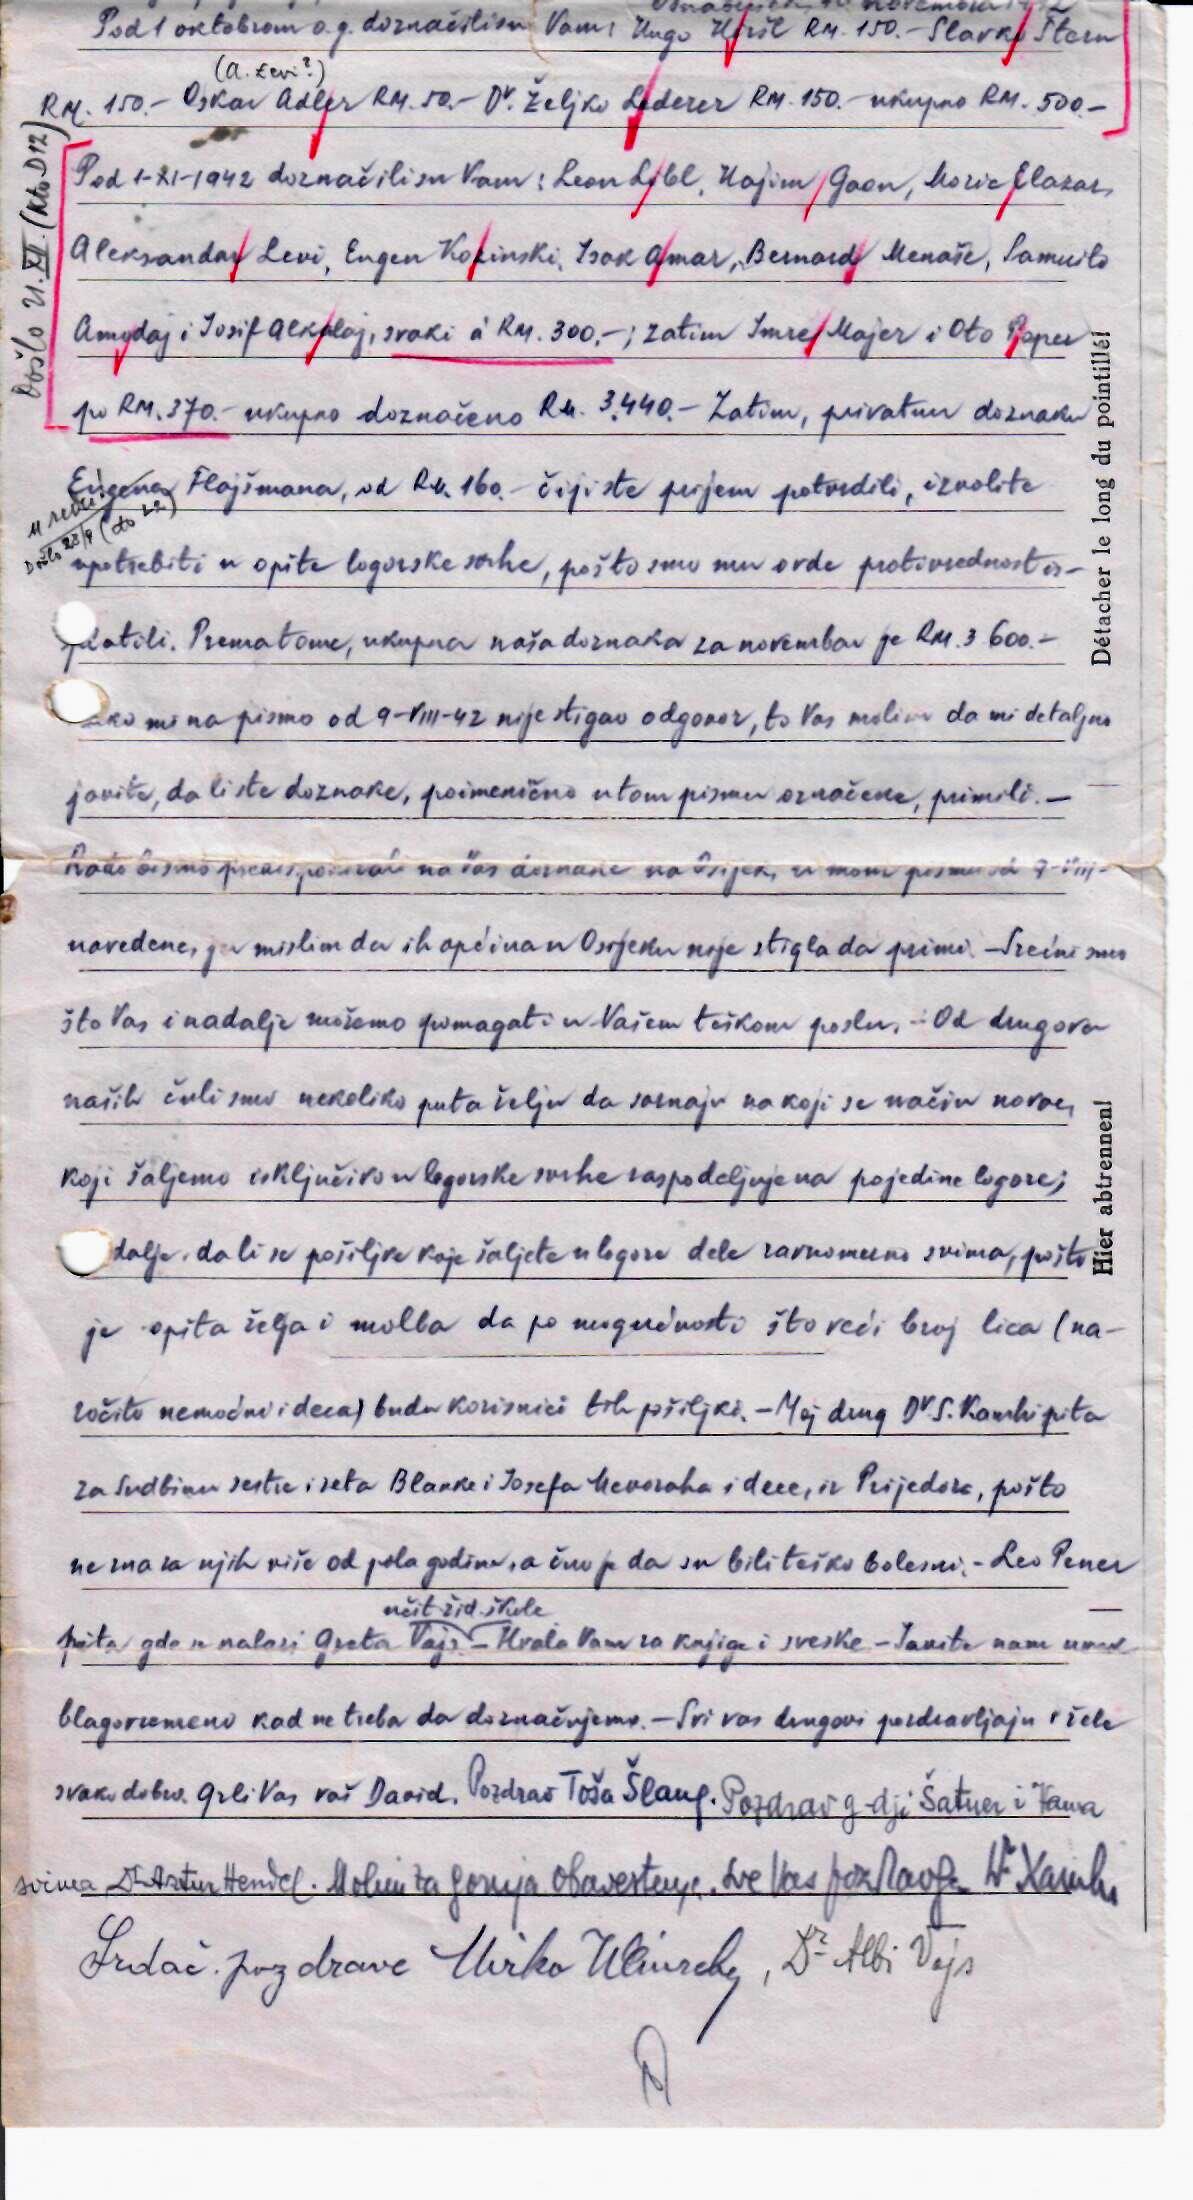 Osnabrück, 10 novembra 1942
Pod 1 oktobrom o.g. doznačili su Vam: Hugo Hiršl RM. 150.- Slavko Štern
(A. Levi?)
RM. 150.- Oskar Adler RM. 50.- Dr. Željko Lederer RM. 150.- ukupno RM. 500.-
Pod 1-XI-1942 doznačili su Vam: Leon Löbl, Hajim Gaon, Moric Elazar,
Aleksandar Levi, Eugen Kozinski, Isak Amar, Bernard Menaše, Samuilo
Amodaj i Josif Alkalaj, svaki á RM. 300.-; zatim Imre Majer i Oto
po RM. 370.- ukupno doznačeno RM. 3.440.- Zatim, privatnu doznaku
Eugena Flajšmana, od RM. 160.- čiji ste prijem potvrdili, izvolite
upotrebiti u opšte logorske svrhe, pošto smo mu ovde protivrednost is-
platili. Prema tome, ukupna naša doznaka za novembar je RM. 3 600.-
Kako mi na pismo od 9-VIII-42 nije stigao odgovor, to Vas molim da mi detaljno
javite, da li ste doznake, poimenično u tom pismu označene, primili.-
Rado bismo na Vas doznake na Osijek, u mom pismu od 9-VIII-
navedene, jer mislim da ih općina u Osijeku nije stigla da primi. - Srećni smo
što Vas i nadalje možemo pomagati u Vašem teškom poslu. - Od drugova
naših čuli smo nekoliko puta želju da saznaju na koji se način novac,
koji šaljemo isključivo u logorske svrhe raspodeljuje na pojedine logore;
dalje, da li se pošiljke koje šaljete u logore dele ravnomerno svima, pošto
je opšta želja i molba da po mogućnosti što veći broj lica (na-
ročito nemoćni i deca) budu korisnici tih pošiljki. - Moj drug Dr. S. Kamhi pita
za sudbinu sestre i zeta Blanke i Josefa Mevoraha i dece, iz Prijedora, pošto
ne zna za njih više od pola godine, a čuo je da su bili teško bolesni. - Leo Pener
učit. žid. škole
pita gde se nalazi Greta Vajs - Hvala Vam za knjige i sveske - Javite nam uvek
blagovremeno kad ne treba da doznačujemo. - Svi vas drugovi pozdravljaju i žele
svako dobro. Grli Vas vaš David. Pozdrav Toša Šlang. Pozdrav g-dji Šatner i Vama
svima Dr Artur Hendel. Molim za gornja obaveštenja. Sve Vas pozdravlja Dr Kamhi
Srdač. pozdrave Mirko, Dr Albi Vajs
Došlo 11.XI. (Kto D12)
Došlo 23/9 (dto L2)
Détacher le long du pointillé!
Hier abtrennen!